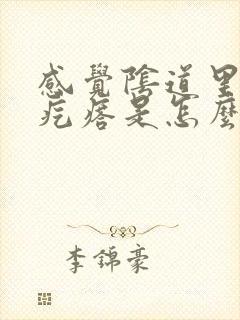 感覺陰道里
疙瘩是怎麼
李錦豪